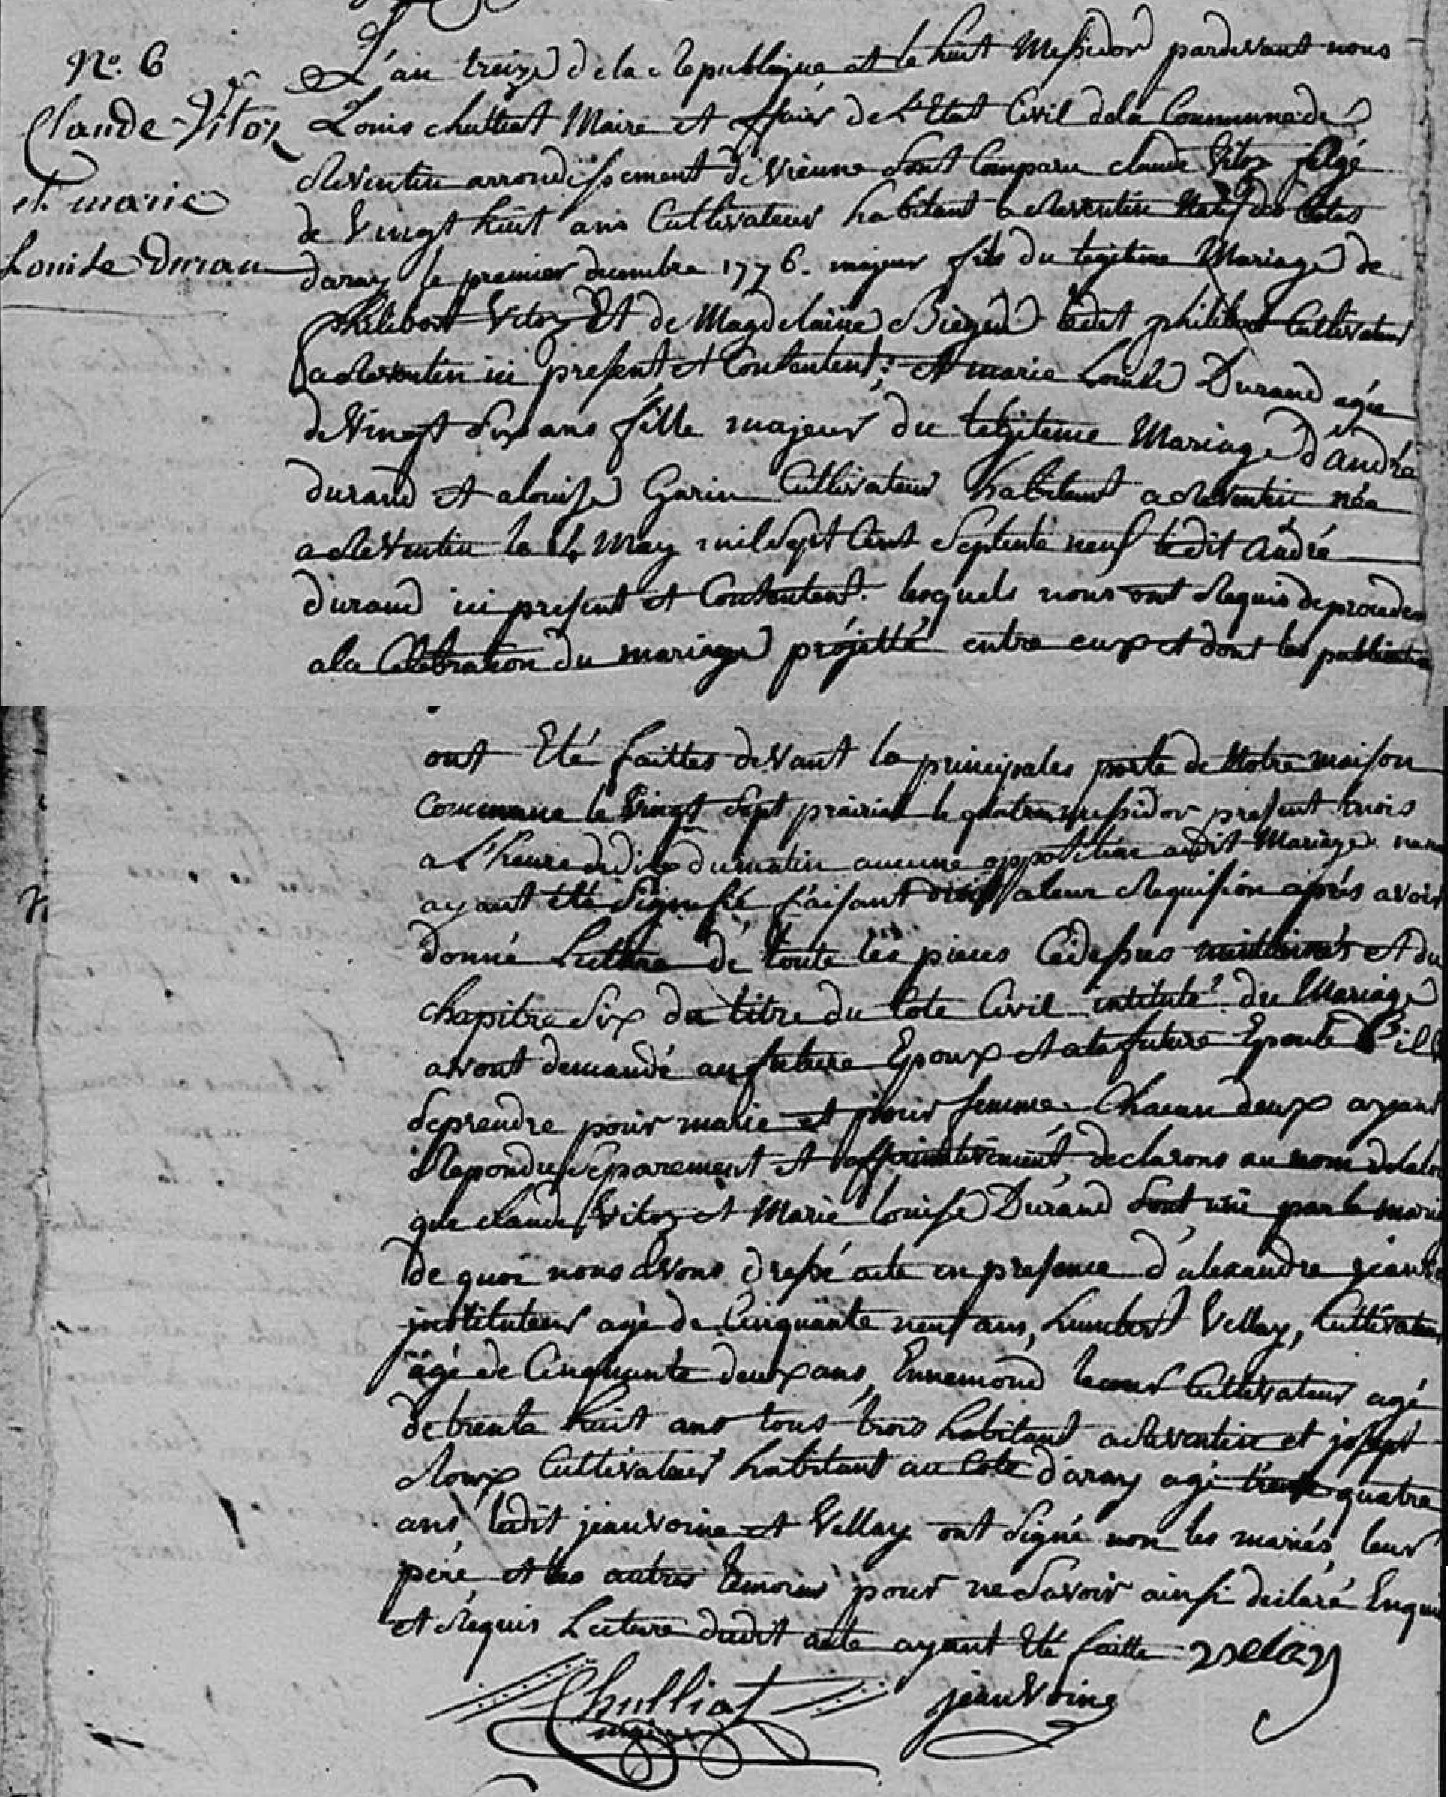 No. 6
Claude Vitoz
et marie
Louise Duran
L'an treize de la republique et le huit Messidor pardevant nous
Louis chulliat Maire et officier de l'Etat Civil dela Commune de
Reventin arrondissement de vienne sont Comparu claude Vitoz agé
de Vingt huit ans Cultivateur habitant a Reventin Natif des Cotes
daray le premier decembre 1776. majeur fils du legitime Mariage de
philibert Vitoz Et de Magdelaine ledit philibert Cultivateur
a Reventin ici present et Consentent; et marie Louise Durand agée
de Vingt six ans fille majeur du legiteme Mariage d'andré
durand et a louise Garin Cultivateur habitant a Reventin née
a Reventin le 4 May mil sept Cent septente neuf ledit andré
durand ici present et Consentent. lesquels nous ont Requis de proceder
a la Celebration du mariage projetté entre eux et dont les publication
ont Eté faittes devant la principales porte de Notre maison
commune le Vingt sept prairial le quatre messidor present mois
a l'heure de dix du matin aucune opposition audit Mariage nan
ayant été signifié faisant droit a leur Requision après avoir
donné Lecture de toute les pieces Cidessus mentionnés et du
chapitre six du titre du Code Civil intitulé du Mariage
avont demandé au future Epoux et a la future Epouse s'il
se prendre pour marie et pour femme Chacun deux ayant
Repondu separement et affirmativement, declarons au nom de la loi
que claude Vitoz et Marie louise Durand sont uni par le mari
de quoi nous avons dressé acte en presence d'alexandre jeanvoine
jnstituteur agé de Cinquante neuf ans, humbert Vellay, Cultivateur
agé de Cinquante deux ans, Ennemond Cultivateur agé
de trente huit ans tous trois habitant a Reventin et joseph
Roux Cultivateur habitant au Cote d'aray agé trente quatre
ans ledit jeanvoine et Vellay ont signé non les mariés leur
père et les autres temoins pour ne savoir ainsi declaré Enquis
et Requis Lecture dudit acte ayant Eté faitte velay
Chulliat jeanvoine
maire